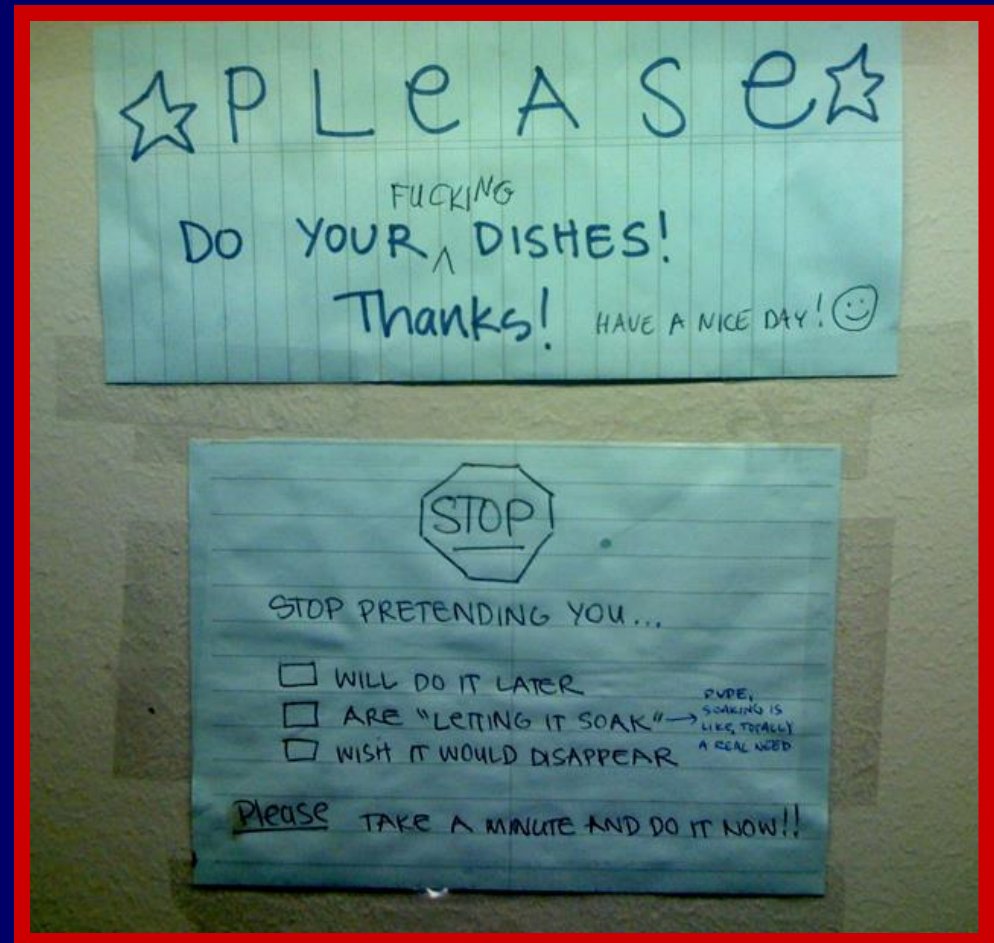 PLeASe
FUCKING
DO YOUR DISHES!
Thanks! HAVE A NICE DAY!
STOP
STOP PRETENDING YOU...
WILL DO IT LATER
ARE "LETTING IT SOAK" → DUDE,
SOAKING IS
LIKE, TOTALLY
A REAL NEED
WISH IT WOULD DISAPPEAR
Please TAKE A MINUTE AND DO IT NOW!!